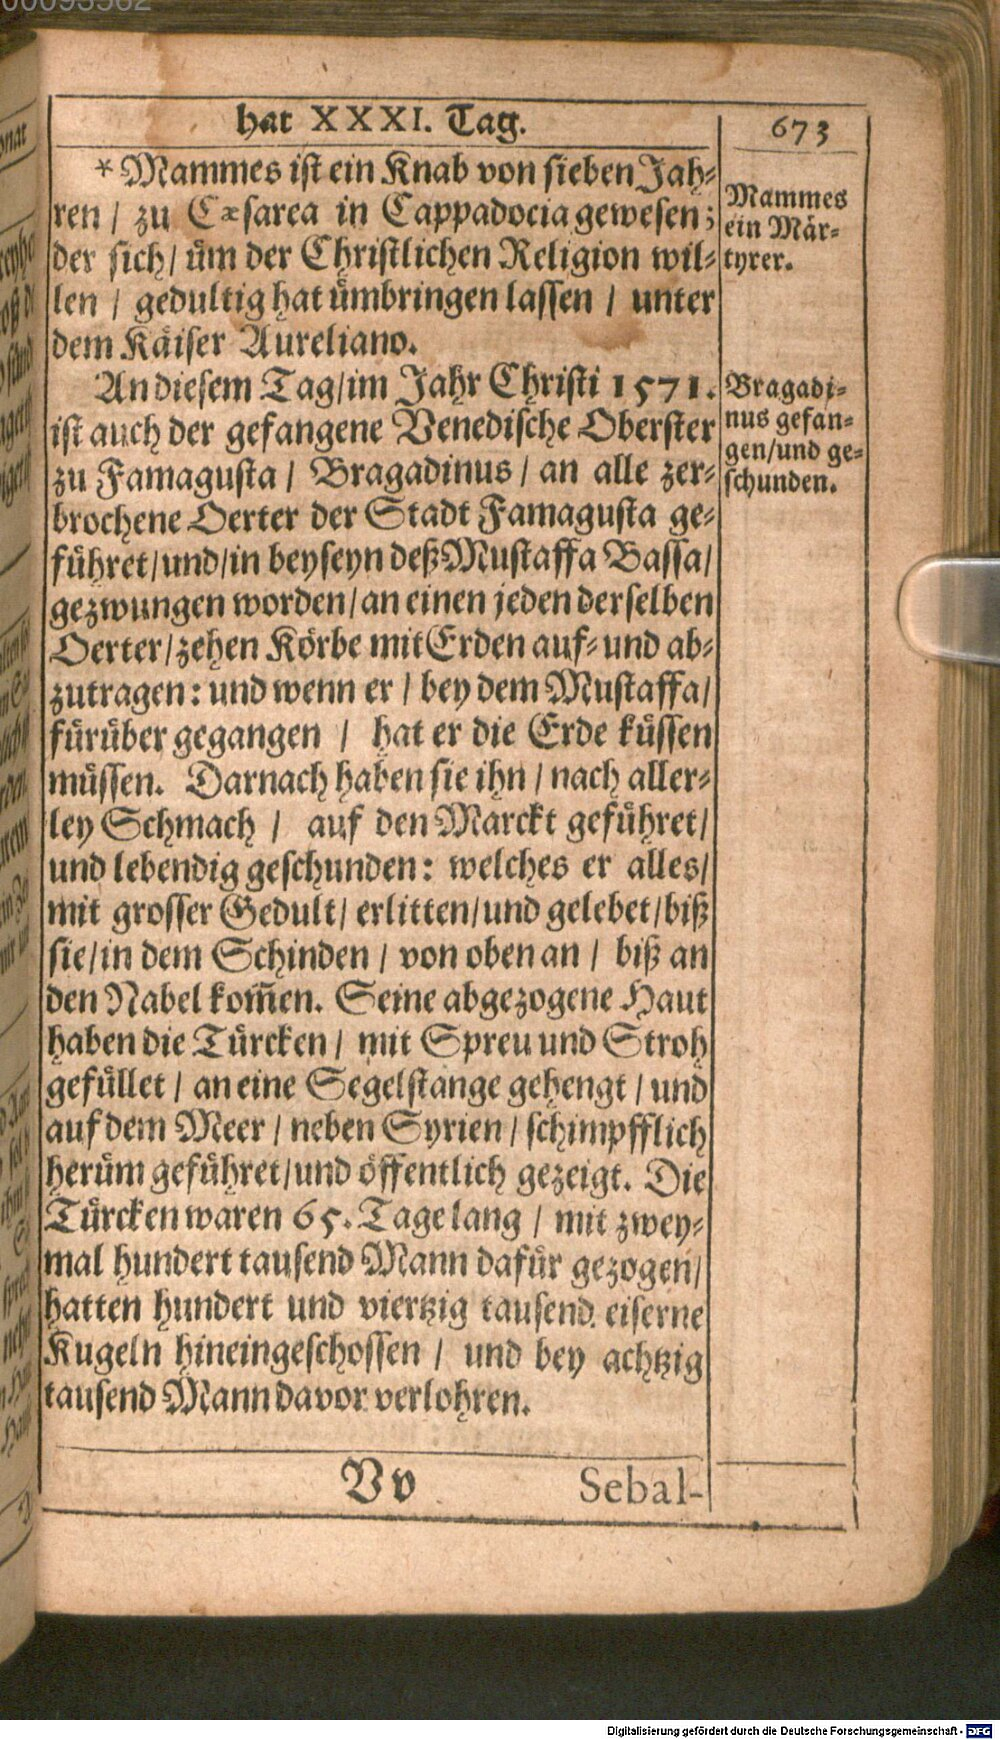 00093562
hat XXXI. Tag.
673
* Mammes ist ein Knab von sieben Jah-
ren / zu Cæsarea in Cappadocia gewesen;
der sich / üm der Christlichen Religion wil-
len / gedultig hat ümbringen lassen / unter
dem Käiser Aureliano.
Mammes
ein Mär-
tyrer.
An diesem Tag / im Jahr Christi 1571.
ist auch der gefangene Venedische Oberster
zu Famagusta / Bragadinus / an alle zer-
brochene Oerter der Stadt Famagusta ge-
führet / und / in beyseyn deß Mustaffa Bassa /
gezwungen worden / an einen jeden derselben
Oerter / zehen Körbe mit Erden auf- und ab-
zutragen: und wenn er / bey dem Mustaffa /
fürüber gegangen / hat er die Erde küssen
müssen. Darnach haben sie ihn / nach aller-
ley Schmach / auf den Marckt geführet /
und lebendig geschunden: welches er alles /
mit grosser Gedult / erlitten / und gelebet / biß
sie / in dem Schinden / von oben an / biß an
den Nabel kom̃en. Seine abgezogene Haut
haben die Türcken / mit Spreu und Stroh
gefüllet / an eine Segelstange gehengt / und
auf dem Meer / neben Syrien / schimpfflich
herüm geführet / und öffentlich gezeigt. Die
Türcken waren 65. Tage lang / mit zwey-
mal hundert tausend Mann dafür gezogen /
hatten hundert und viertzig tausend eiserne
Kugeln hineingeschossen / und bey achtzig
tausend Mann davor verlohren.
Bragadi-
nus gefan-
gen / und ge-
schunden.
Vv
Sebal-
Digitalisierung gefördert durch die Deutsche Forschungsgemeinschaft - DFG